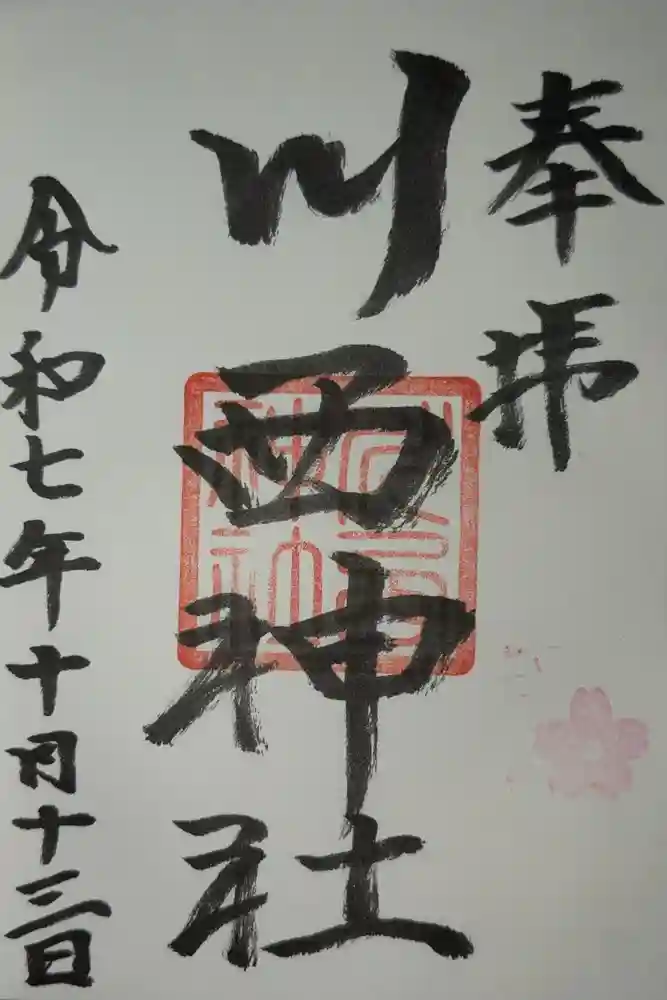 奉拝
川西神社
令和七年十月十三日